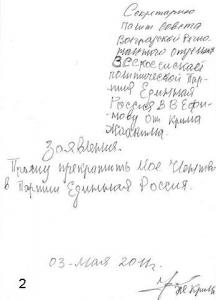 Секретарию
полит совета
Волгоградской Регио
нального отделения
ВСероссийской
политической Пар
тия Единная
Россия В В Ефи
мову от Крила
Заявления.
Прошу прекратить Мое Членство
в Партии Единная Россия.
03-Мая 2011г.
2